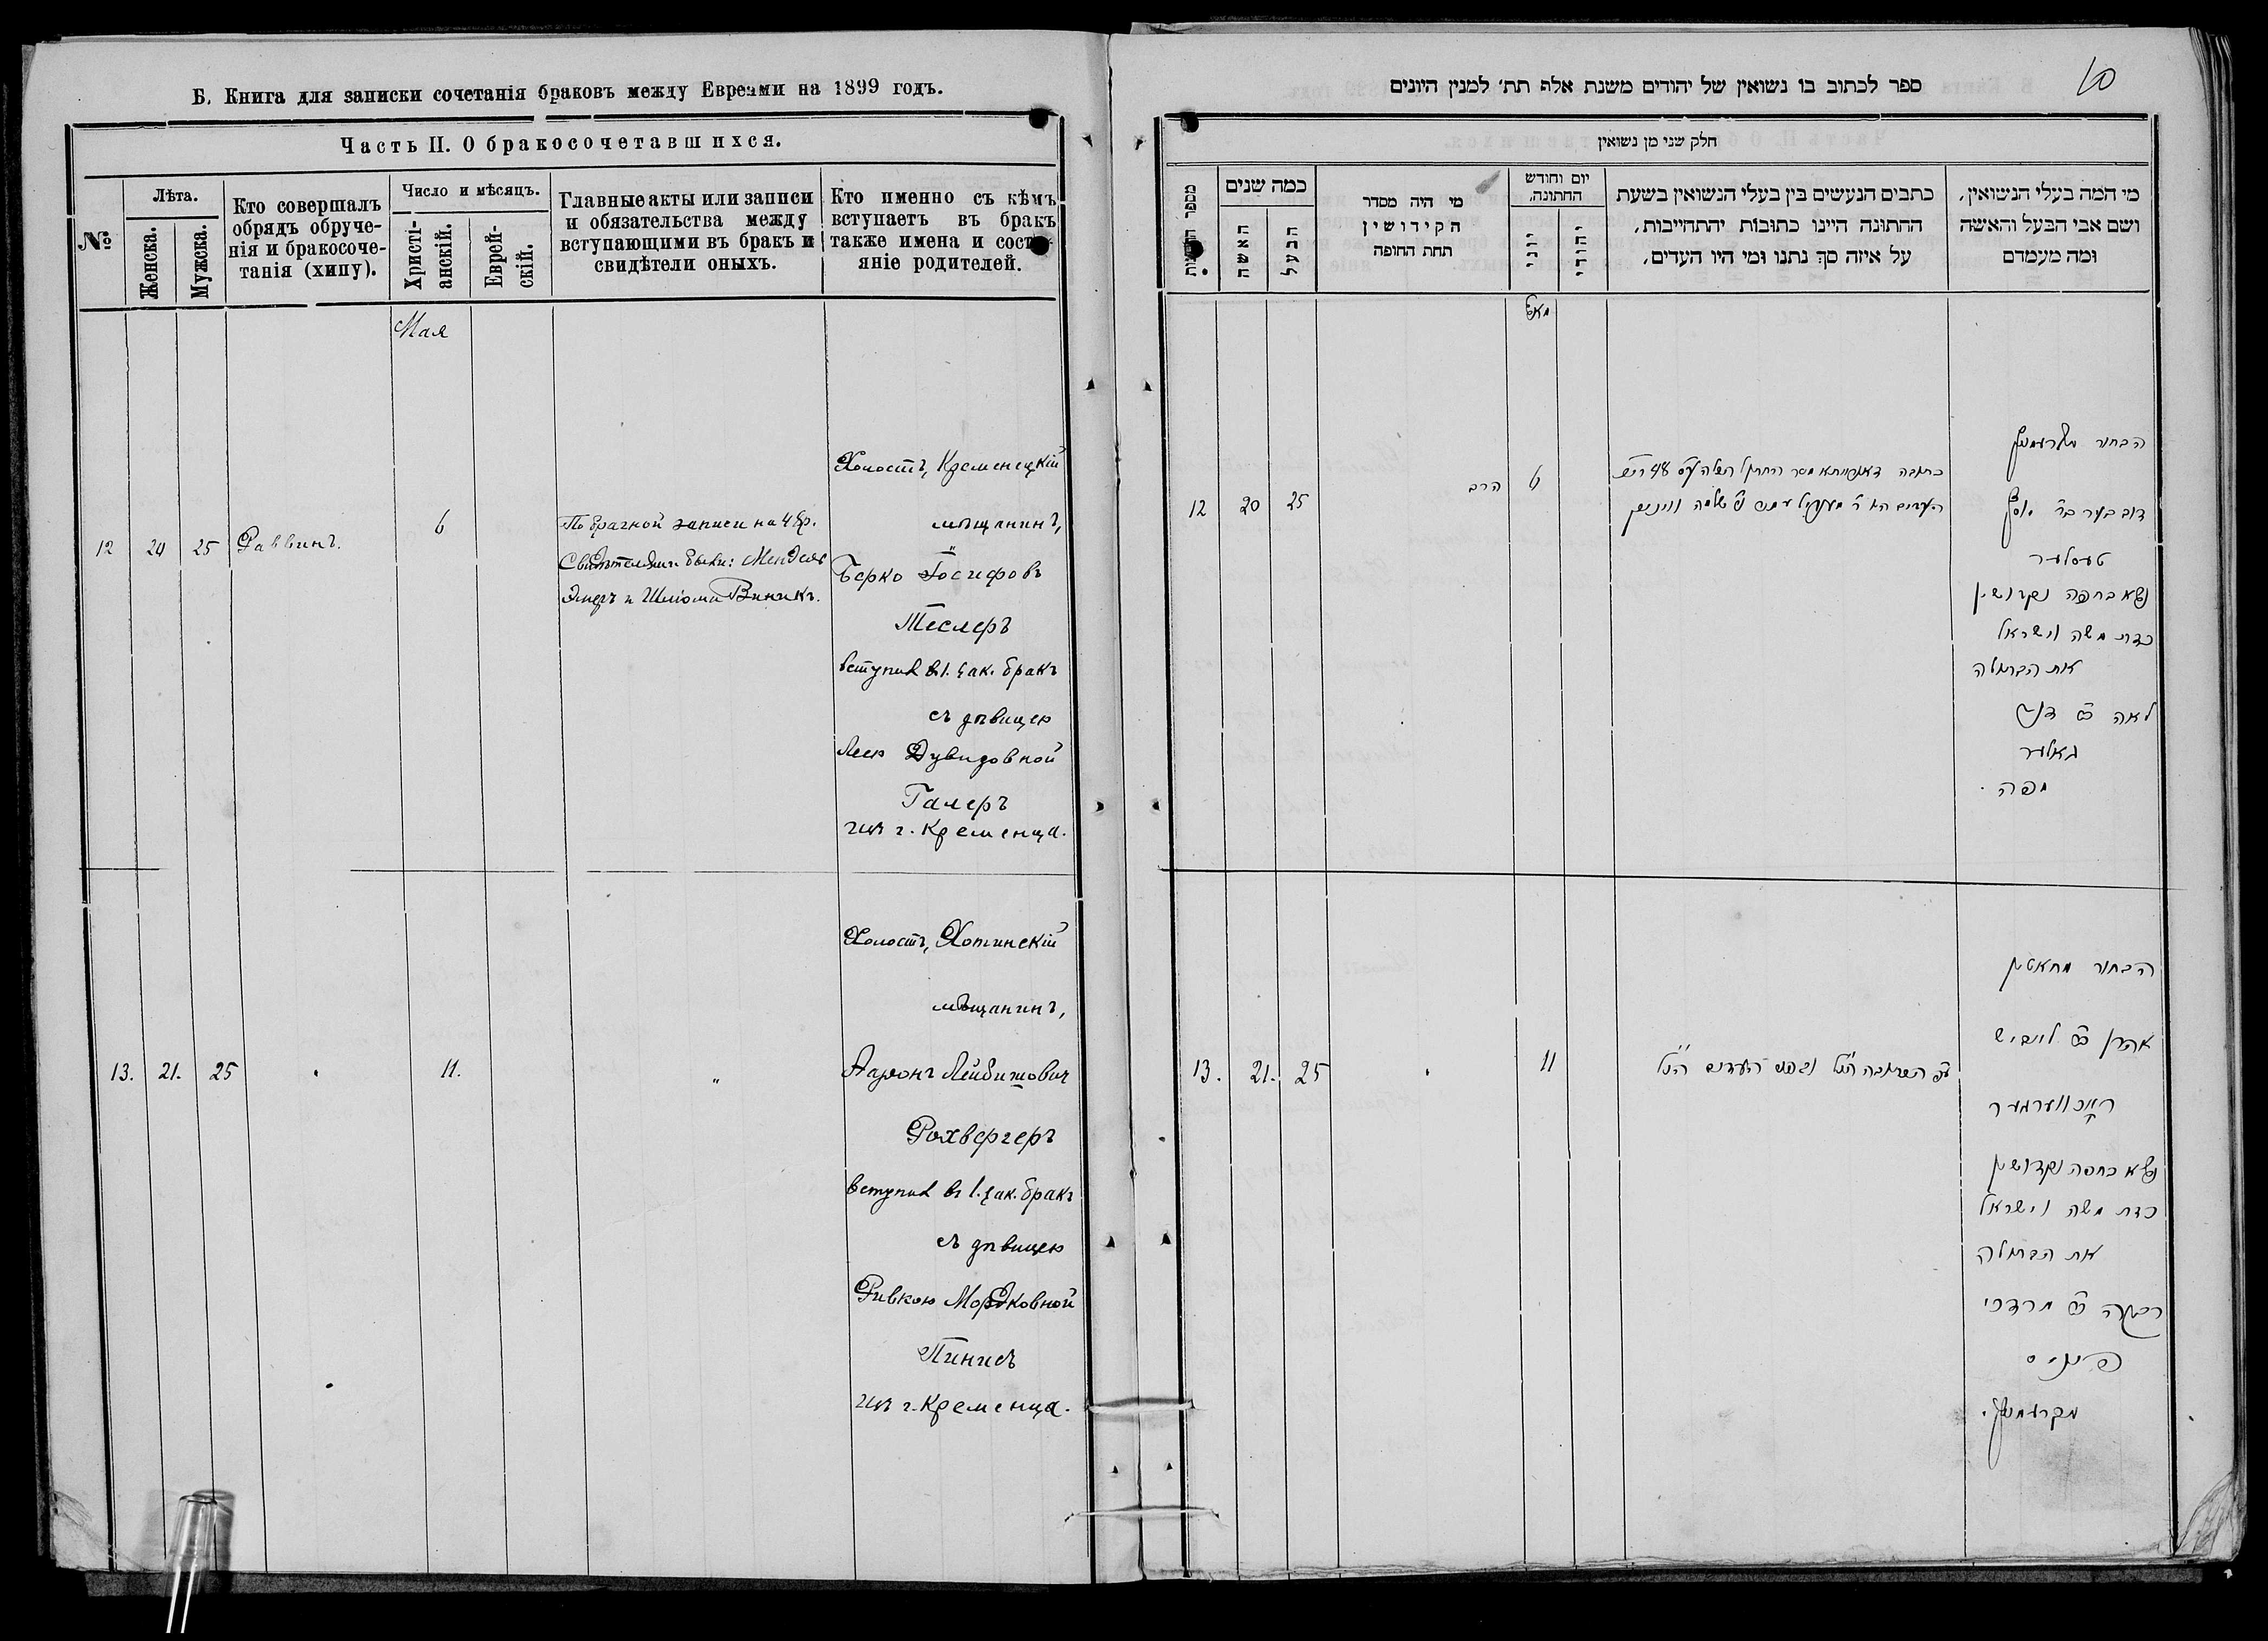 Б. Книга для записки сочетанія браковъ между Евреями на 1899 годъ.
Часть II. О бракосочетавшихся.
№
Лѣта.
Женска.
Мужска.
Кто совершалъ
обрядъ обруче-
нія и бракосоче-
танія (хипу).
Число и мѣсяцъ.
Христі-
анскій.
Еврей-
скій.
Главные акты или записи
и обязательства между
вступающими въ бракъ и
свидѣтели оныхъ.
Кто именно съ кѣмъ
вступаетъ въ бракъ
также имена и состо-
яніе родителей.
Мая
12
20
25
Раввинъ.
6
По брачной записи на 48 р.
Свидѣтелями были: Мендель
и Шлiома Виникъ.
Холостъ, Кременецкій
мѣщанинъ,
Берко Іосифовъ
Теслеръ
вступил в 1. зак. бракъ
съ дѣвицею
Леею Дувидовной
Галеръ
изъ г. Кременца.
13.
21.
25
"
11.
"
Холостъ, Хотинскій
мѣщанинъ,
Ааронъ Лейбишовичъ
Рохвергеръ
вступил въ 1. зак. бракъ
съ дѣвицею
Ривкою Мордковной
Пинисъ
изъ г. Кременца.
10
ספר לכתוב בו נשואין של יהודים משנת אלף תת׳ למנין היונים
חלק שני מן נשואין
מספר הנשואין
כמה שנים
האשה
הבעל
מי היה מסדר
הקידושין
תחת החופה
יום וחודש
החתונה.
יוני
יהודי
כתבים הנעשים בין בעלי הנשואין בשעת
החתונה היינו כתובות יהתחייבות,
על איזה סך נתנו ומי היו העדים,
מי המה בעלי הנשואין,
ושם אבי הבעל והאשה
ומה מעמדם
מאי
12
20
25
הרב
6
הבחור מקרעמניץ
דוב בער ב״ר יוסף
טעסלער
נשא בחפה וקדושין
כדת משה וישראל
את הבתולה
לאה ב״ דוד
גאלער
מפה.
13.
21.
25
"
11
ע״פ הכתובה הנ״ל ובפני העדים הנ״ל
הבחור מחאטין
אהרן ב״ר לייביש
ראכווערגער
נשא בחפה וקדושין
כדת משה וישראל
את הבתולה
רבקה ב״ מרדכי
פיניס
מקרעמניץ.